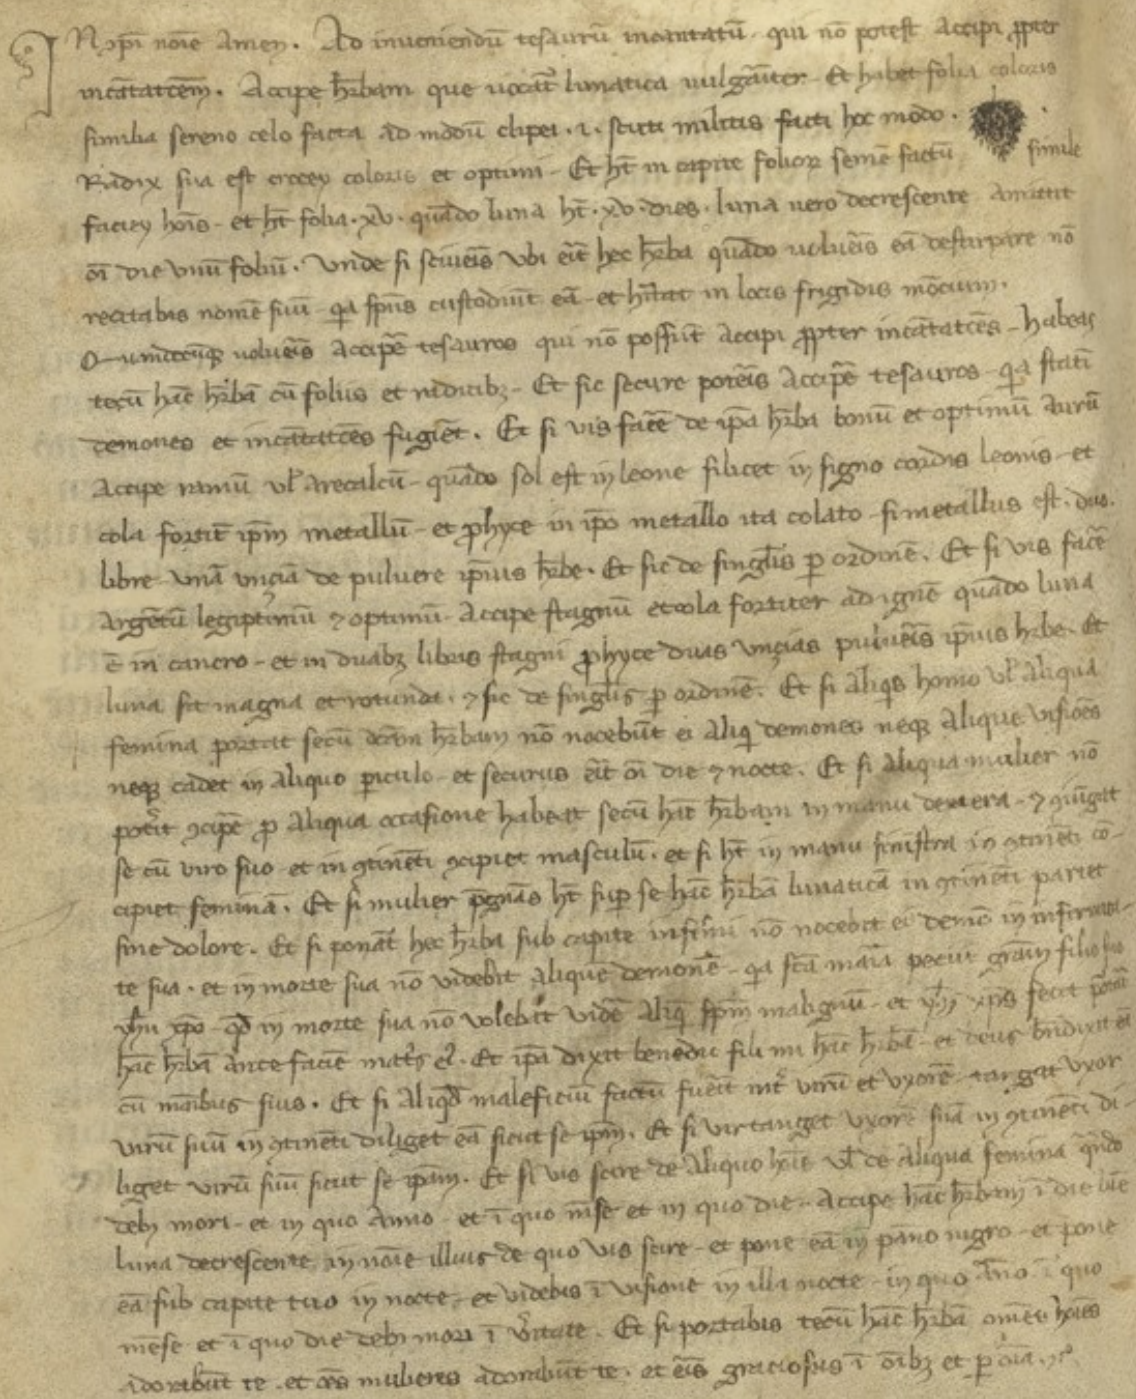 IN xpi noīe Amen. Ad inveniendū tesaurū incantatū qui nō potest Accipi ꝓpter
incātatōem. Accipe h̄rbam que vocat̄ lunatica vulgārīter Et habet folia coloris
similia sereno celo facta ad modū clipei .i. scuti militis facti hoc modo.
Radix sua est crocey coloris et optimi Et ht̄ in capite folior̄ semē factū simile
faciey hoīs et ht̄ folia .xv. quādo luna ht̄ .xv. dies. luna vero decrescente amittit
oī die vnū foliū. Vnde si sciveīs vbi eīt hec h̄rba quādo volveīs eā destirpare nō
recitabis nomē suū qa sp̄us custodiūt eā et h̄itat in locis frigidis mōcium.
Quādocūqꝫ volveīs Accipē tesauros qui nō possūt Accipi ꝓpter incātatōes Habeas
tecū hāc h̄rbā cū foliis et radicibꝫ Et sic secure poteīs Accipē tesauros qa statī
demones et incātatōes fugiēt. Et si vis facē de ip̄a h̄rba bonū et optimū Aurū
Accipe ramū vl̄ Arecalcū quādo sol est in leone silicet in signo cordis leonis et
cola fortit̄ ip̄m metallū et ꝓhyce in ip̄o metallo ita colato si metallus est duo.
libre vnā vnciā de pulvere ip̄ius h̄rbe. Et sic de singl̄is ꝑ ordinē. Et si vis facē
Argētū legiptimū ⁊ optimū Accipe stagnū et cola fortiter ad ignē quādo luna
ē in cancro et in duabꝫ libris stagni ꝓhyce duas vncias pulveīs ip̄ius h̄rbe. Et
luna sit magna et rotunda. ⁊ sic de singl̄is ꝑ ordinē. Et si Aliqs homo vl̄ aliqua
femina portat secū dc̄am h̄rbam nō nocebūt ei aliqi demones neqꝫ Alique visiōes
neqꝫ cadet in aliquo ꝑiculo et securus eīt oī die ⁊ nocte. Et si aliqua mulier nō
potīt ꝯcipē ꝓ Aliqua occasione habeat secū hāc h̄rbam in manu dextera ⁊ ꝯiūgat
se cū viro suo et in ꝯtinēti ꝯcipiet masculū. et si ht̄ in manu sinistra in ꝯtinēti cō-
cipiet feminā. Et si mulier p̄gnās ht̄ suꝑ se hāc h̄rbā lunaticā in ꝯtinēti pariet
sine dolore. Et si ponat̄ hec h̄rba sub capite infirmi nō nocebit ei demō in infirmita-
te sua. et in morte sua nō videbit alique demonē qa sc̄a maīa peciit grām filio suo
yh̄u xp̄o qd̄ in morte sua nō volebat vidē aliq sp̄m malignū et yh̄s xp̄s fecit portāī
hāc h̄rbā ante faciē mat̄s eī. Et ip̄a dixit benedic fili mi hāc h̄rbā et deus bn̄dixit eā
cū mānibus suis. Et si Aliqd̄ maleficiū factū fueīt int̄ virū et vxorē tangat vxor
virū suū in ꝯtinēti diliget eā sicut se ip̄m. Et si vir tanget vxorē suā in ꝯtinēti di-
liget virū suū sicut se ip̄am. Et si vis scire de Aliquo hoīe vl̄ de aliqua femina qn̄do
debꝫ mori et in quo Anno et ī quo mēse et in quo die Accipe hāc h̄rbam ī die lūe
luna decrescente in noīe illius de quo vis scire et pone eā in pāno nigro et pone
eā sub capite tuo in nocte et videbis ī visione in illa nocte in quo āno ī quo
mēse et ī quo die debꝫ mori ī v̄itate. Et si portabis tecū hāc h̄rbā omēs hoīes
adorabūt te et oēs mulieres adorabūt te. et eīs graciosus ī oībꝫ et ꝑ oīa ⁊c̄